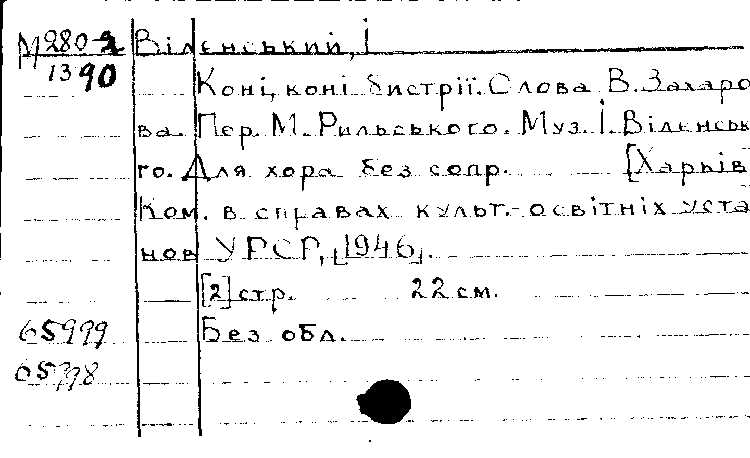 М280-2 Віленський, І
1390
Коні, коні бистрії. Слова В. Захаро
ва. Пер. М. Рильського. Муз. І. Віленськ
го. Для хора без сопр. [Харьків
Ком. в справах культ.-освітніх уста
нов УРСР, [1946].
[2] стр. 22 см.
65999 Без обл.
65998